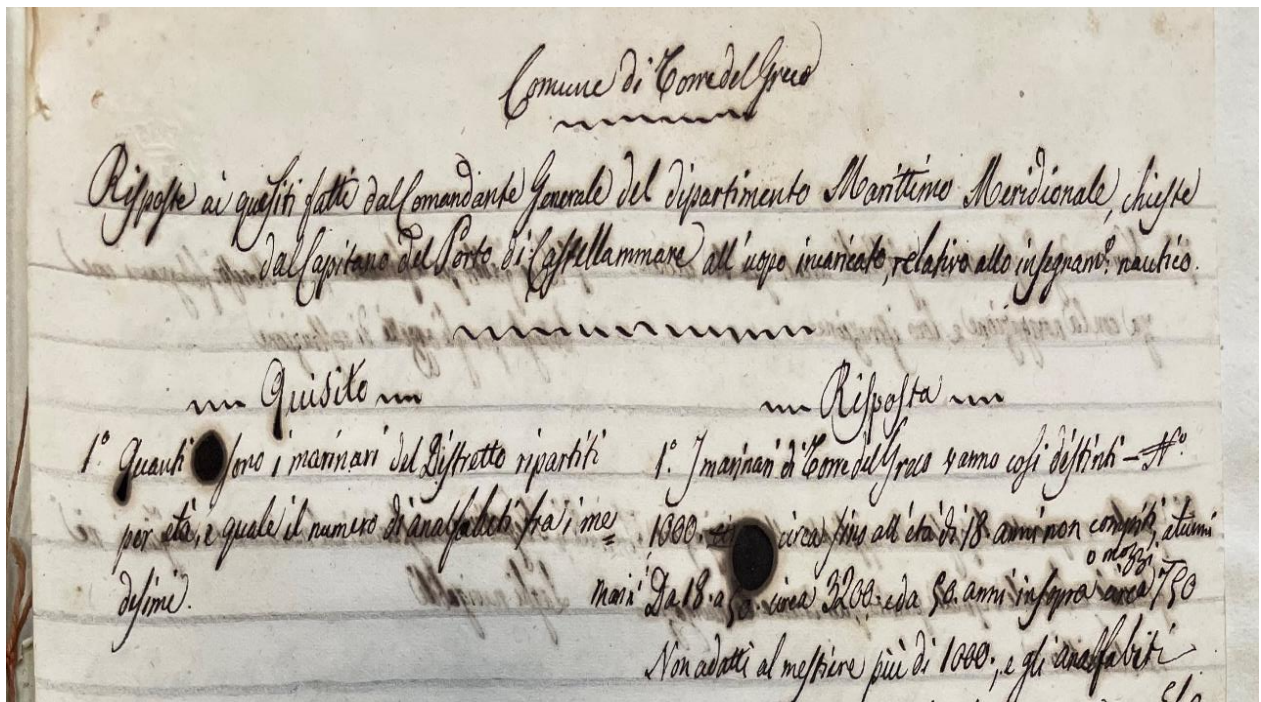 Comune di Torre del Greco
Risposte ai quesiti fatti dal Comandante Generale del dipartimento Marittimo Meridionale, chieste
dal Capitano del Porto di Castellammare all'uopo incaricato, relativo allo insegnam.º nautico.
Quisito
Risposta
1.º Quanti sono i marinari del Distretto ripartiti
per età, e quale il numero di analfabeti fra i me
desimi.
1.º I marinari di Torre del Greco vanno così distinti – N.º
1000 circa fino all'età di 18 anni non compiti, alunni
o mozzi
marin.i Da 18 a 50 circa 3200 e da 50 anni insopra circa 750
Non adatti al mestiere più di 1000, e gli analfabeti